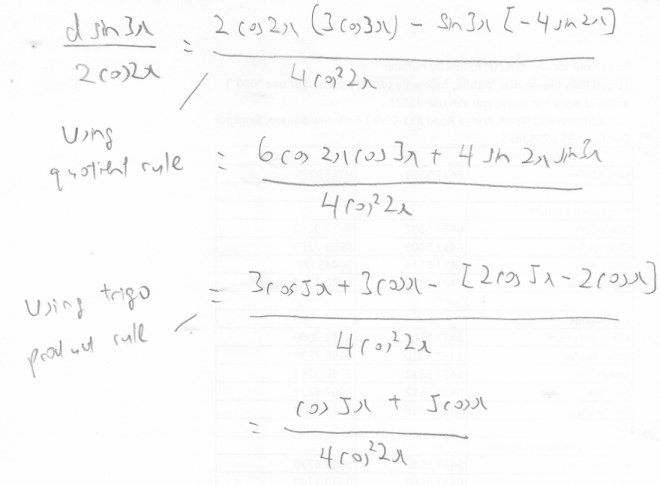 d sin 3x / 2 cos 2x = 2 cos 2x (3 cos 3x) - sin 3x [-4 sin 2x] / 4 cos² 2x
Using
quotient rule
= 6 cos 2x cos 3x + 4 sin 2x sin 3x / 4 cos² 2x
Using trigo
product rule
= 3 cos 5x + 3 cos x - [2 cos 5x - 2 cos x] / 4 cos² 2x
= cos 5x + 5 cos x / 4 cos² 2x